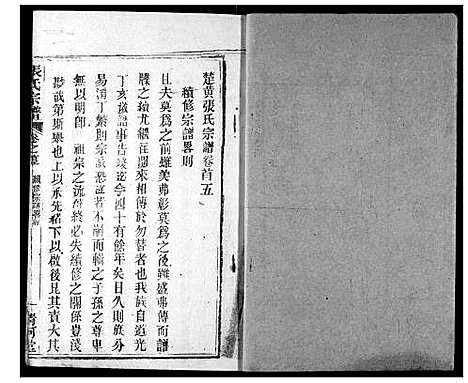 楚黄張氏宗譜卷首五
續修宗譜畧則
且夫莫為之前雖美弗彰莫為之後雖盛弗傳而譜
牒之續尤繼往開來相傳於勿替者也我族自道光
丁亥譜事告竣迄今四十有餘年矣日久則族分
易淆丁繁則宗派恐而輯之子孫之尊卑
無以明即祖宗之流傳終必失續修之關係豈淺
尠哉第斯舉也上以承先緒下以啟後昆其責大其
張氏宗譜
清河堂